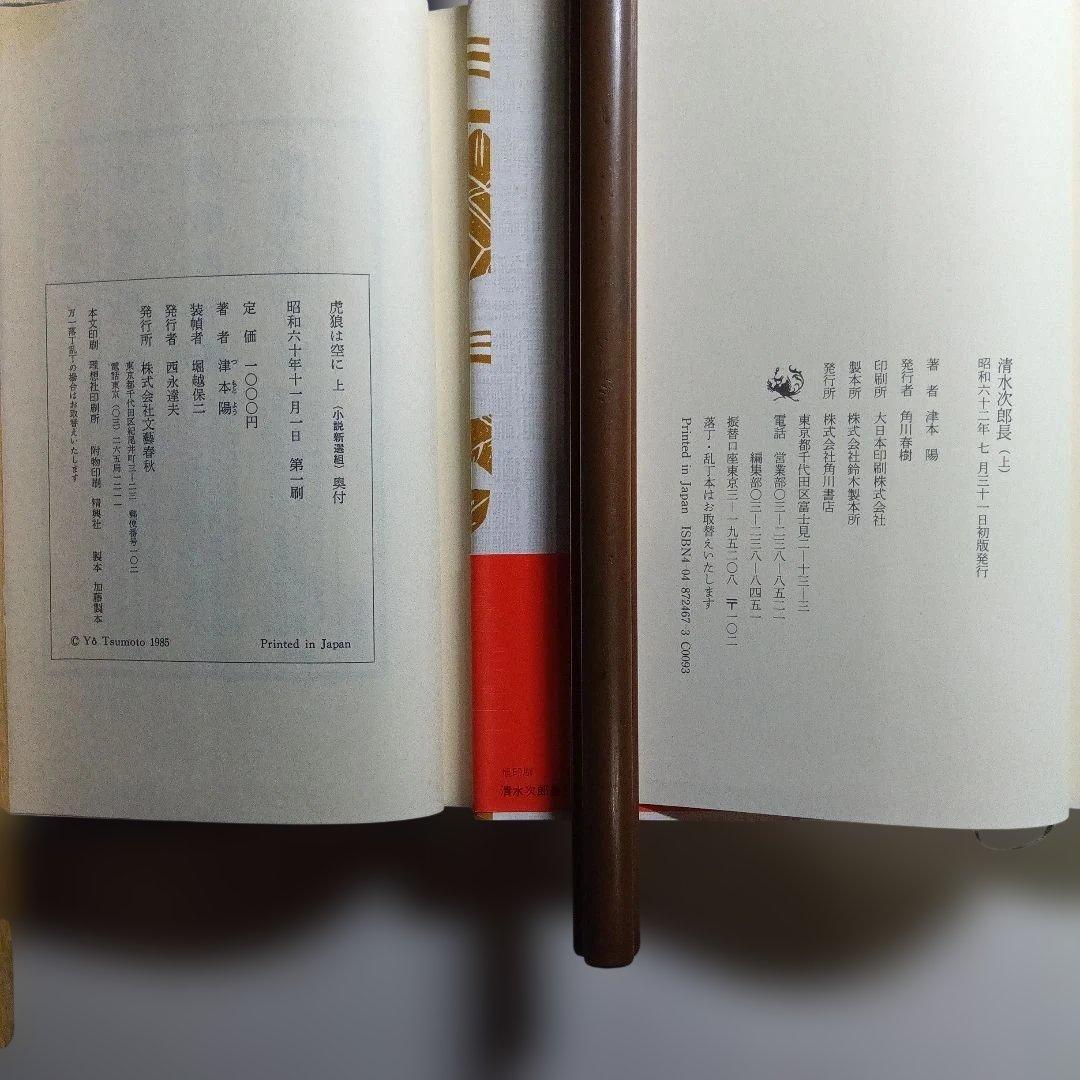 虎狼は空に 上 (小説新選組) 奥付
昭和六十年十一月一日 第一刷
定 価 一〇〇〇円
著 者 津本陽
つ もと よう
装幀者 堀越保二
発行者 西永達夫
発行所 株式会社文藝春秋
東京都千代田区紀尾井町三―二三 郵便番号一〇二
電話東京(〇三)二六五局一二一一
本文印刷 理想社印刷所 附物印刷 精興社 製本 加藤製本
万一落丁乱丁の場合はお取替えいたします
© Yō Tsumoto 1985 Printed in Japan
清水次郎長
清水次郎長(上)
昭和六十二年 七 月三十一日初版発行
著 者 津本 陽
発行者 角川春樹
印刷所 大日本印刷株式会社
製本所 株式会社鈴木製本所
発行所 株式会社角川書店
東京都千代田区富士見二―十三―三
電話 営業部〇三―二三八―八五二一
編集部〇三―二三八―八四五一
振替口座東京三―一九五二〇八 〒一〇二
落丁・乱丁本はお取替えいたします
Printed in Japan ISBN4-04-872467-3 C0093